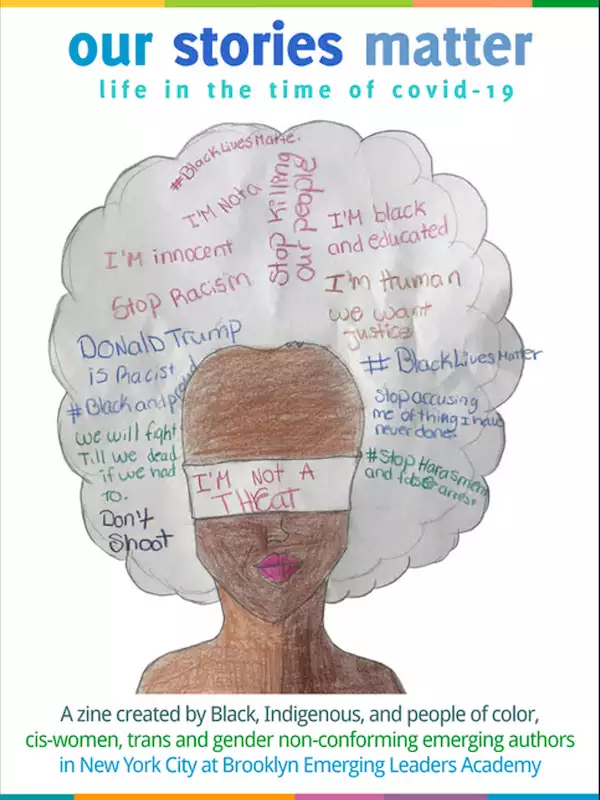 our stories matter
life in the time of covid-19
#BlackLivesMatte.
I'M Not a
Stop killing
our people
I'M black
and educated
I'm innocent
I'm Human
Stop Racism
we want
justice
Donald Trump
is Racist
#Black and proud
# BlackLivesMatter
Stop accusing
me of thing I have
never done.
we will fight
Till we dead
if we had
to.
#Stop Harasment
and false arrest
Don't
Shoot
I'M NOT A
THREAT
A zine created by Black, Indigenous, and people of color,
cis-women, trans and gender non-conforming emerging authors
in New York City at Brooklyn Emerging Leaders Academy